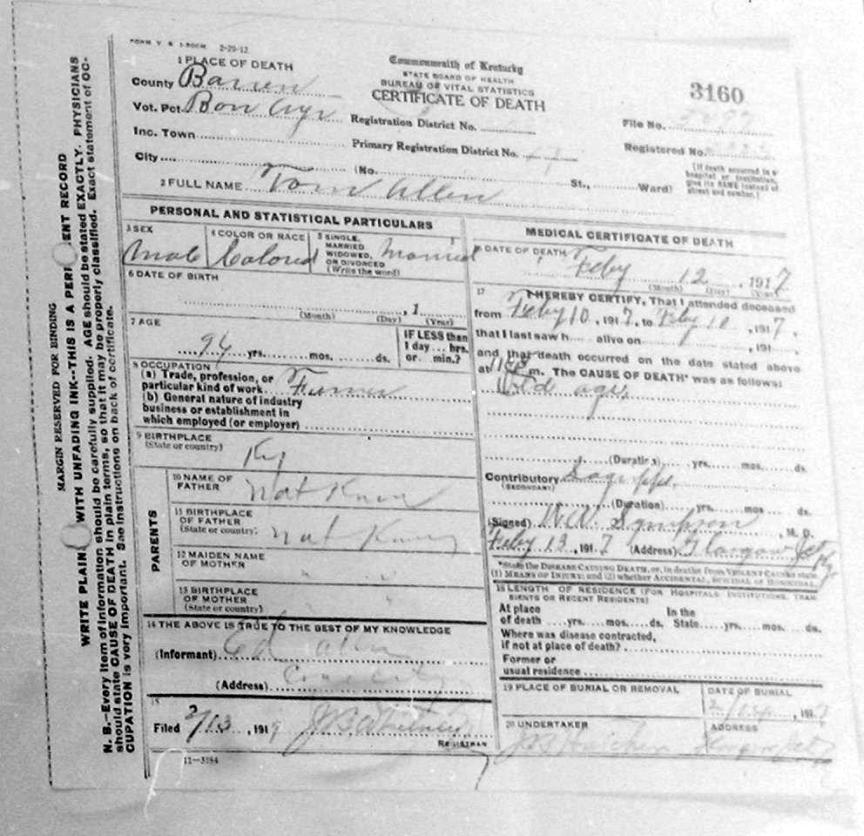 FORM V. S. 1-500M 2-29-12
1 PLACE OF DEATH
County Barren
Vot. Pct. Bon Ayr
Inc. Town
City
(No. St., Ward)
Commonwealth of Kentucky
STATE BOARD OF HEALTH
BUREAU OF VITAL STATISTICS
CERTIFICATE OF DEATH
Registration District No.
Primary Registration District No.
3160
File No.
Registered No.
(If death occurred in a
hospital or institution,
give its NAME instead of
street and number.)
2 FULL NAME Tom Allen
PERSONAL AND STATISTICAL PARTICULARS
3 SEX
Male
4 COLOR OR RACE
Colored
5 SINGLE,
MARRIED
WIDOWED,
OR DIVORCED
(Write the word)
Married
6 DATE OF BIRTH
, 1
(Month) (Day) (Year)
7 AGE
94 yrs. mos. ds.
IF LESS than
1 day... hrs.
or... min.?
8 OCCUPATION
(a) Trade, profession, or
particular kind of work Farmer
(b) General nature of industry
business or establishment in
which employed (or employer)
9 BIRTHPLACE
(State or country)
Ky
PARENTS
10 NAME OF
FATHER
Not Know
11 BIRTHPLACE
OF FATHER
(State or country)
Not Know
12 MAIDEN NAME
OF MOTHER
13 BIRTHPLACE
OF MOTHER
(State or country)
14 THE ABOVE IS TRUE TO THE BEST OF MY KNOWLEDGE
(Informant) Ed Allen
(Address)
15
Filed 2/13, 191
REGISTRAR
11—3184
MEDICAL CERTIFICATE OF DEATH
DATE OF DEATH
Feby 12, 1917
(Month) (Day) (Year)
17 I HEREBY CERTIFY, That I attended deceased
from Feby 10, 1917, to Feby 10, 1917.
that I last saw h... alive on , 191
and that death occurred on the date stated above
at m. The CAUSE OF DEATH* was as follows:
Old age
(Duration) yrs. mos. ds.
Contributory Lagrippe
(SECONDARY)
(Duration) yrs. mos. ds.
(Signed) Simpson M. D.
Feby 13, 1917 (Address) Glasgow
*State the DISEASE CAUSING DEATH, or, in deaths from VIOLENT CAUSES state
(1) MEANS OF INJURY; and (2) whether ACCIDENTAL, SUICIDAL or HOMICIDAL.
18 LENGTH OF RESIDENCE (FOR HOSPITALS INSTITUTIONS, TRAN-
SIENTS OR RECENT RESIDENTS)
At place In the
of death yrs. mos. ds. State yrs. mos. ds.
Where was disease contracted,
if not at place of death?
Former or
usual residence
19 PLACE OF BURIAL OR REMOVAL
DATE OF BURIAL
, 1917
20 UNDERTAKER
ADDRESS
MARGIN RESERVED FOR BINDING
WRITE PLAINLY WITH UNFADING INK—THIS IS A PERMANENT RECORD
N. B.—Every item of information should be carefully supplied. AGE should be stated EXACTLY. PHYSICIANS
should state CAUSE OF DEATH in plain terms, so that it may be properly classified. Exact statement of OC-
CUPATION is very important. See instructions on back of certificate.